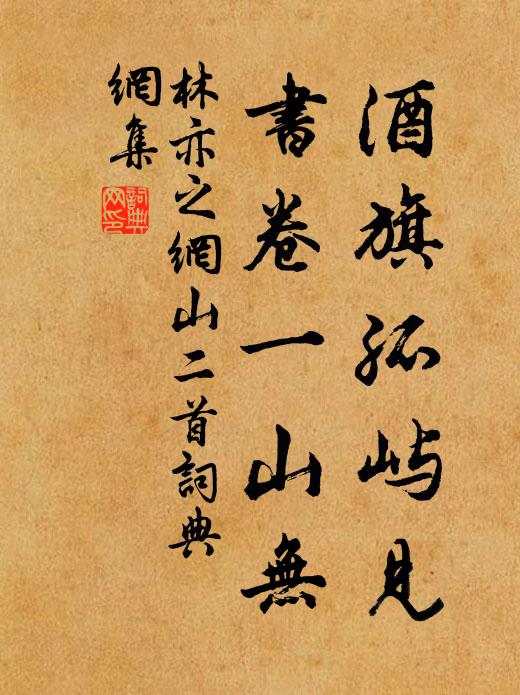 酒旗孤屿見
書卷一山無
林亦之網山二首詞典
網集
詞典網印